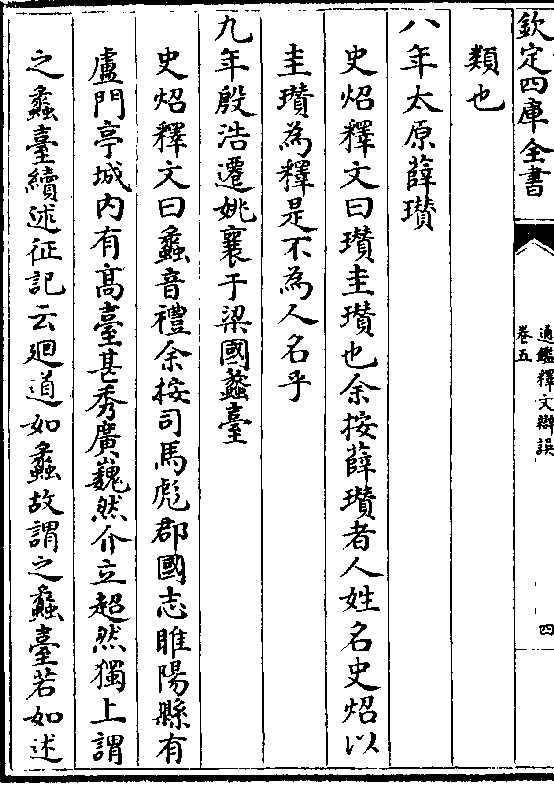 欽定四庫全書
通鑑釋文辯誤
卷五
四
類也
八年太原薛瓚
史炤釋文曰瓚圭瓚也余按薛瓚者人姓名史炤以
圭瓚為釋是不為人名乎
九年殷浩遷姚襄于梁國蠡臺
史炤釋文曰蠡音禮余按司馬彪郡國志睢陽縣有
盧門亭城内有髙臺甚秀廣巍然介立超然獨上謂
之蠡臺續述征記云廻道如蠡故謂之蠡臺若如述